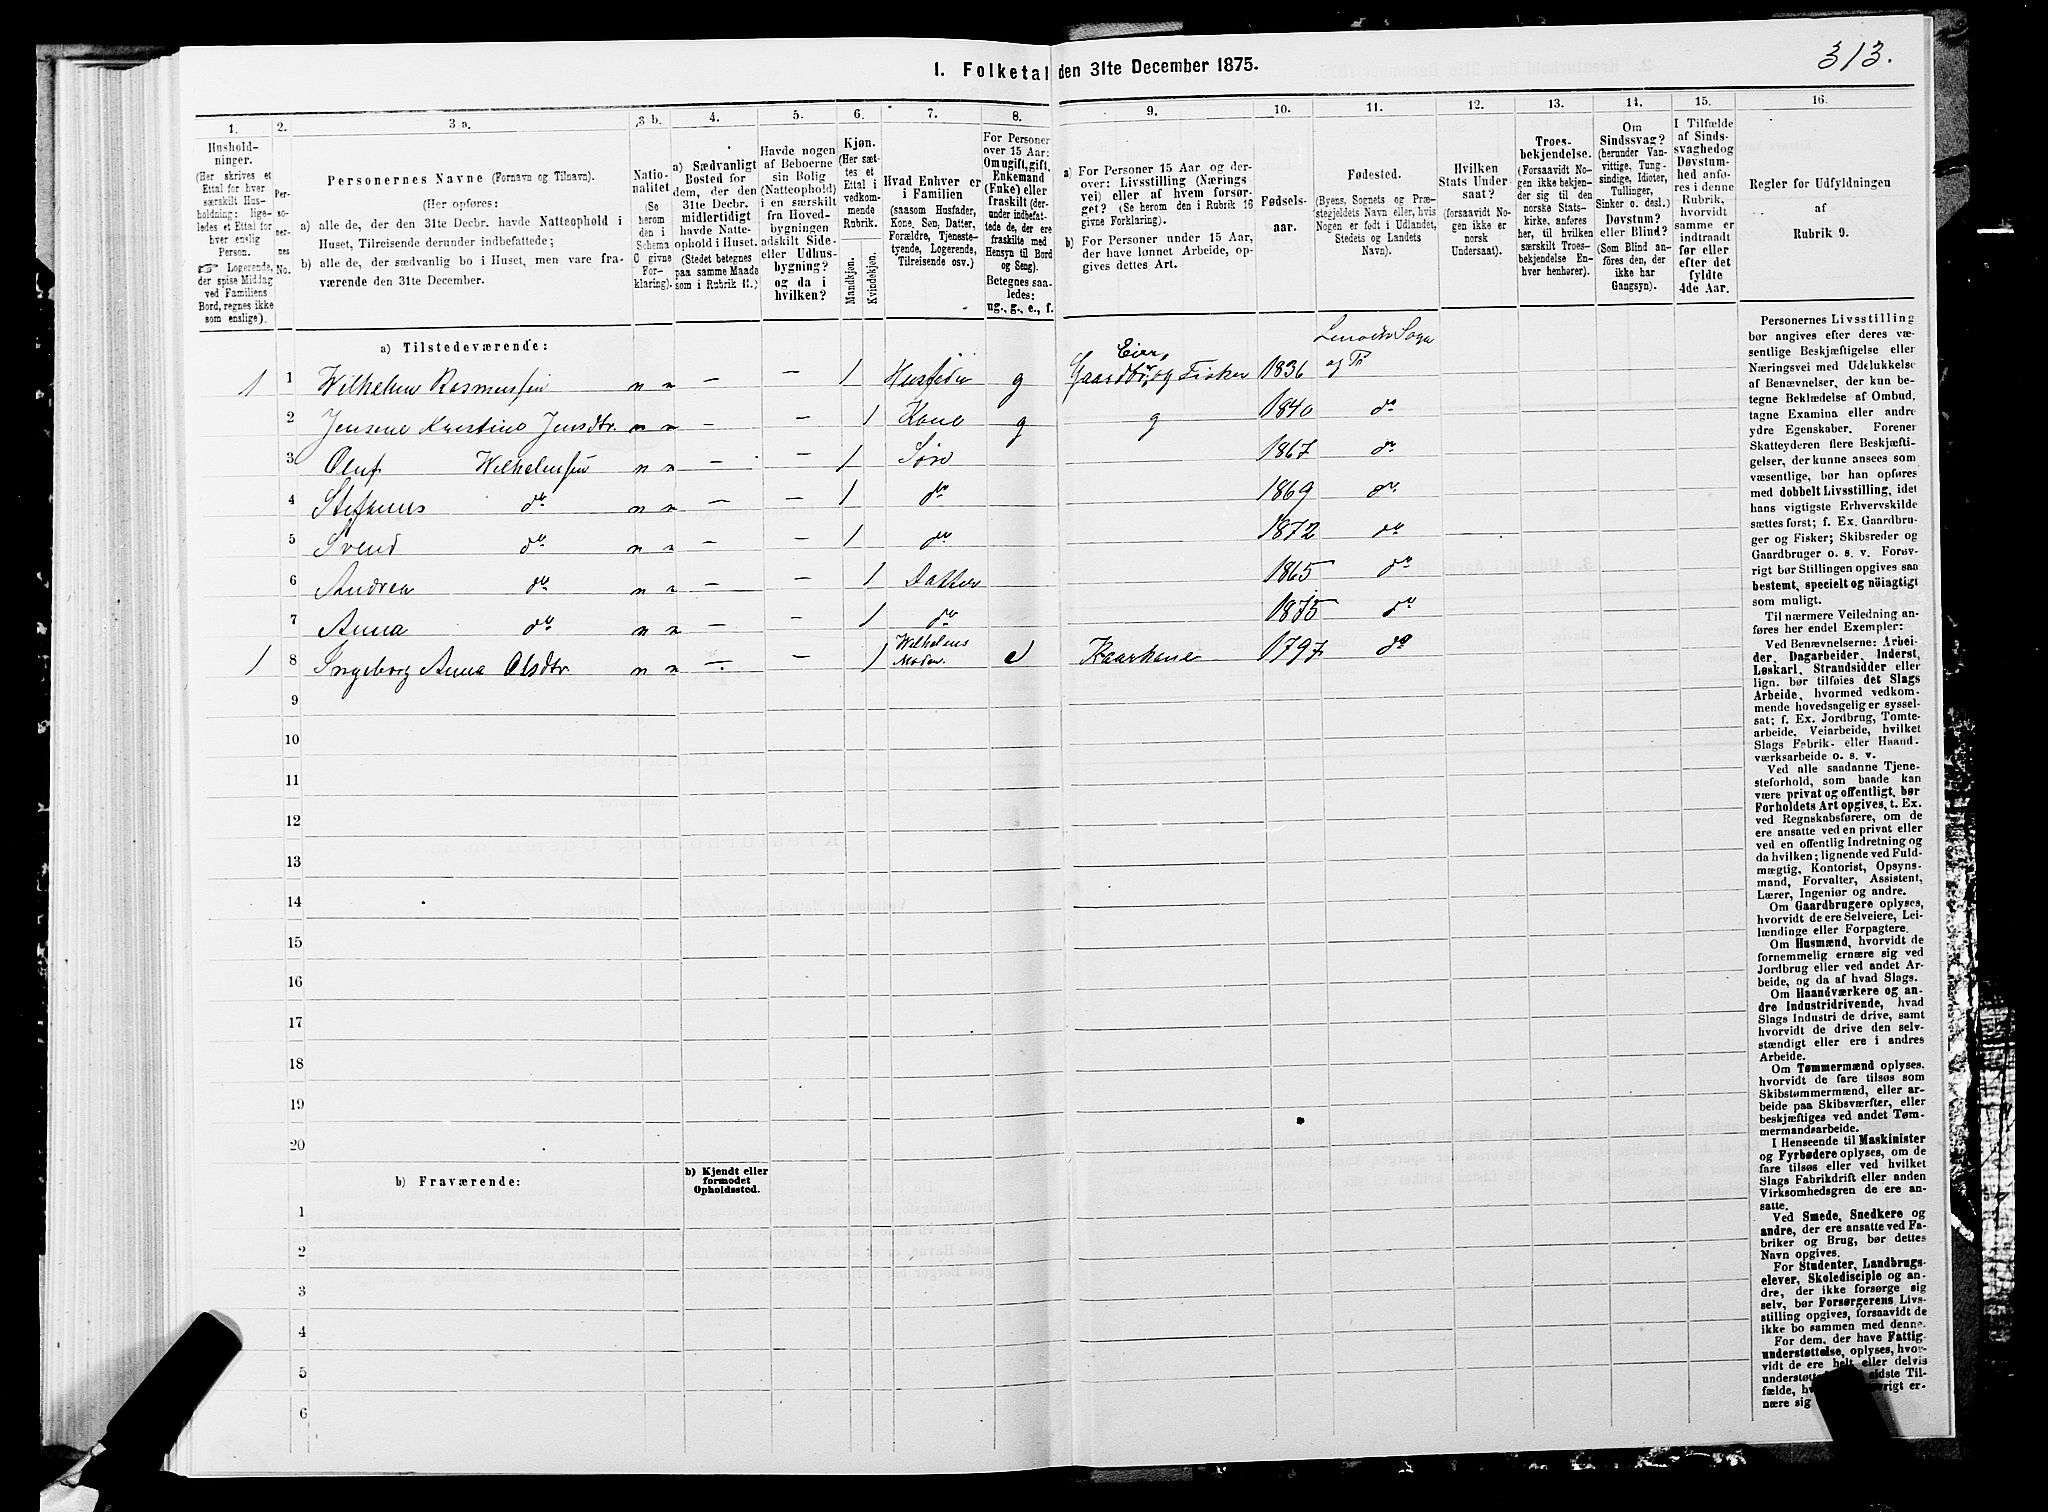 313.
1. Folketal den 31te December 1875.
1.
Hushold-
ninger.
(Her skrives et
Ettal for hver
særskilt Hus-
holdning: lige-
ledes et Ettal for
hver enslig
Person.
Logerende,
der spise Middag
ved Familiens
Bord, regnes ikke
som enslige).
2.
Per-
so-
ner-
nes
No.
3 a.
Personernes Navne (Fornavn og Tilnavn).
(Her opføres:
a) alle de, der den 31te Decbr. havde Natteophold i
Huset, Tilreisende derunder indbefattede;
b) alle de, der sædvanlig bo i Huset, men vare fra-
værende den 31te December.
3 b.
Natio-
nalitet
(Se
herom
den i
Schema
C givne
For-
klaring).
4.
a) Sædvanligt
Bosted for
dem, der den
31te Decbr.
midlertidigt
havde Natte-
ophold i Huset.
(Stedet betegnes
paa samme Maade
som i Rubrik 11.)
5.
Havde nogen
af Beboerne
sin Bolig
(Natteophold)
i en særskilt
fra Hoved-
bygningen
adskilt Side-
eller Udhus-
bygning?
og da i
hvilken?
6.
Kjøn.
(Her sæt-
tes et
Ettal i
vedkom-
mende
Rubrik.
Mandkjøn.
Kvindekjøn.
7.
Hvad Enhver er
i Familien
(saasom Husfader,
Kone, Søn, Datter,
Forældre, Tjeneste-
tyende, Logerende,
Tilreisende osv.)
8.
For Personer
over 15 Aar:
Om ugift, gift,
Enkemand
(Enke) eller
fraskilt (der-
under indbefat-
tede de, der ere
fraskilte med
Hensyn til Bord
og Seng).
Betegnes saa-
ledes:
ug., g., e., f.
9.
a) For Personer 15 Aar og der-
over: Livsstilling (Nærings
vei) eller af hvem forsør-
get? (Se herom den i Rubrik 16
givne Forklaring).
b) For Personer under 15 Aar,
der have lønnet Arbeide, op-
gives dettes Art.
10.
Fødsels-
aar.
11.
Fødested.
(Byens, Sognets og Præ-
stegjeldets Navn eller, hvis
Nogen er født i Udlandet,
Stedets og Landets
Navn).
12.
Hvilken
Stats Under-
saat?
(forsaavidt No-
gen ikke er
norsk
Undersaat).
13.
Troes-
bekjendelse.
(Forsaavidt No-
gen ikke bekjen-
der sig til den
norske Stats-
kirke, anføres
her, til hvilken
særskilt Troes-
bekjendelse En-
hver henhører).
14.
Om
Sindssvag?
(herunder Van-
vittige, Tung-
sindige, Idioter,
Tullinger,
Sinker o. desl.)
Døvstum?
eller Blind?
(Som Blind an-
føres den, der
ikke har
Gangsyn).
15.
I Tilfælde
af Sinds-
svaghed og
Døvstum-
hed anfø-
res i denne
Rubrik,
hvorvidt
samme er
indtraadt
før eller
efter det
fyldte
4de Aar.
16.
Regler for Udfyldningen
af
Rubrik 9.
a) Tilstedeværende:
1 1 Wilhelm Rasmussen n n — — 1 Husfader g Eier, Gaardbr. og Fisker 1836 Sogn og Pr
2 Jensene Kristine Jensdtr. n n — — 1 Kone g g 1840 do
3 Oluf Wilhelmsen n n — — 1 Søn 1867 do
4 Stefanus do n n — — 1 do 1869 do
5 Svend do n n — — 1 do 1872 do
6 Andrea do n n — — 1 Datter 1865 do
7 Anna do n n — — 1 do 1875 do
1 8 Ingeborg Anna Olsdtr n n — — 1 Wilhelms Moder. e Kaarkone 1797 do
9
10
11
12
13
14
15
16
17
18
19
20
b) Fraværende:
b) Kjendt eller
formodet
Opholdssted.
1
2
3
4
5
6
Personernes Livsstilling
bør angives efter deres væ-
sentlige Beskjæftigelse eller
Næringsvei med Udelukkelse
af Benævnelser, der kun be-
tegne Beklædelse af Ombud,
tagne Examina eller andre
ydre Egenskaber. Forener
Skatteyderen flere Beskjæfti-
gelser, der kunne ansees som
væsentlige, bør han opføres
med dobbelt Livsstilling, idet
hans vigtigste Erhvervskilde
sættes først; f. Ex. Gaardbru-
ger og Fisker; Skibsreder og
Gaardbruger o. s. v. Forøv-
rigt bør Stillingen opgives saa
bestemt, specielt og nöiagtigt
som muligt.
Til nærmere Veiledning an-
føres her endel Exempler:
Ved Benævnelserne: Arbei-
der, Dagarbeider, Inderst,
Løskarl, Strandsidder eller
lign. bør tilføies det Slags
Arbeide, hvormed vedkom-
mende hovedsagelig er syssel-
sat; f. Ex. Jordbrug, Tomte-
arbeide, Veiarbeide, hvilket
Slags Fabrik- eller Haand-
værksarbeide o. s. v.
Ved alle saadanne Tjene-
steforhold, som baade kan
være privat og offentligt, bør
Forholdets Art opgives, t. Ex.
ved Regnskabsførere, om de
ere ansatte ved en privat eller
ved en offentlig Indretning og
da hvilken; lignende ved Fuld-
mægtig, Kontorist, Opsyns-
mand, Forvalter, Assistent,
Lærer, Ingeniør og andre.
Om Gaardbrugere oplyses,
hvorvidt de ere Selveiere, Lei-
lændinge eller Forpagtere.
Om Husmænd, hvorvidt de
fornemmelig ernære sig ved
Jordbrug eller ved andet Ar-
beide, og da af hvad Slags.
Om Haandværkere og an-
dre Industridrivende, hvad
Slags Industri de drive, samt
hvorvidt de drive den selv-
stændigt eller ere i andres
Arbeide.
Om Tømmermænd oplyses,
hvorvidt de fare tilsøs som
Skibstømmermænd, eller ar-
beide paa Skibsværfter, eller
beskjæftiges ved andet Tøm-
mermandsarbeide.
I Henseende til Maskinister
og Fyrbødere oplyses, om de
fare tilsøs eller ved hvilket
Slags Fabrikdrift eller anden
Virksomhedsgren de ere an-
satte.
Ved Smede, Snedkere og
andre, der ere ansatte ved Fa-
briker og Brug, bør dettes
Navn opgives.
For Studenter, Landbrugs-
elever, Skoledisciple og an-
dre, der ikke forsørge sig
selv, bør Forsørgerens Livs-
stilling opgives, forsaavidt de
ikke bo sammen med denne.
For dem, der have Fattig-
understøttelse, oplyses, hvor-
vidt de ere helt eller delvis
understøtt sidste Til-
fælde, hv vrigt er-
nære sig